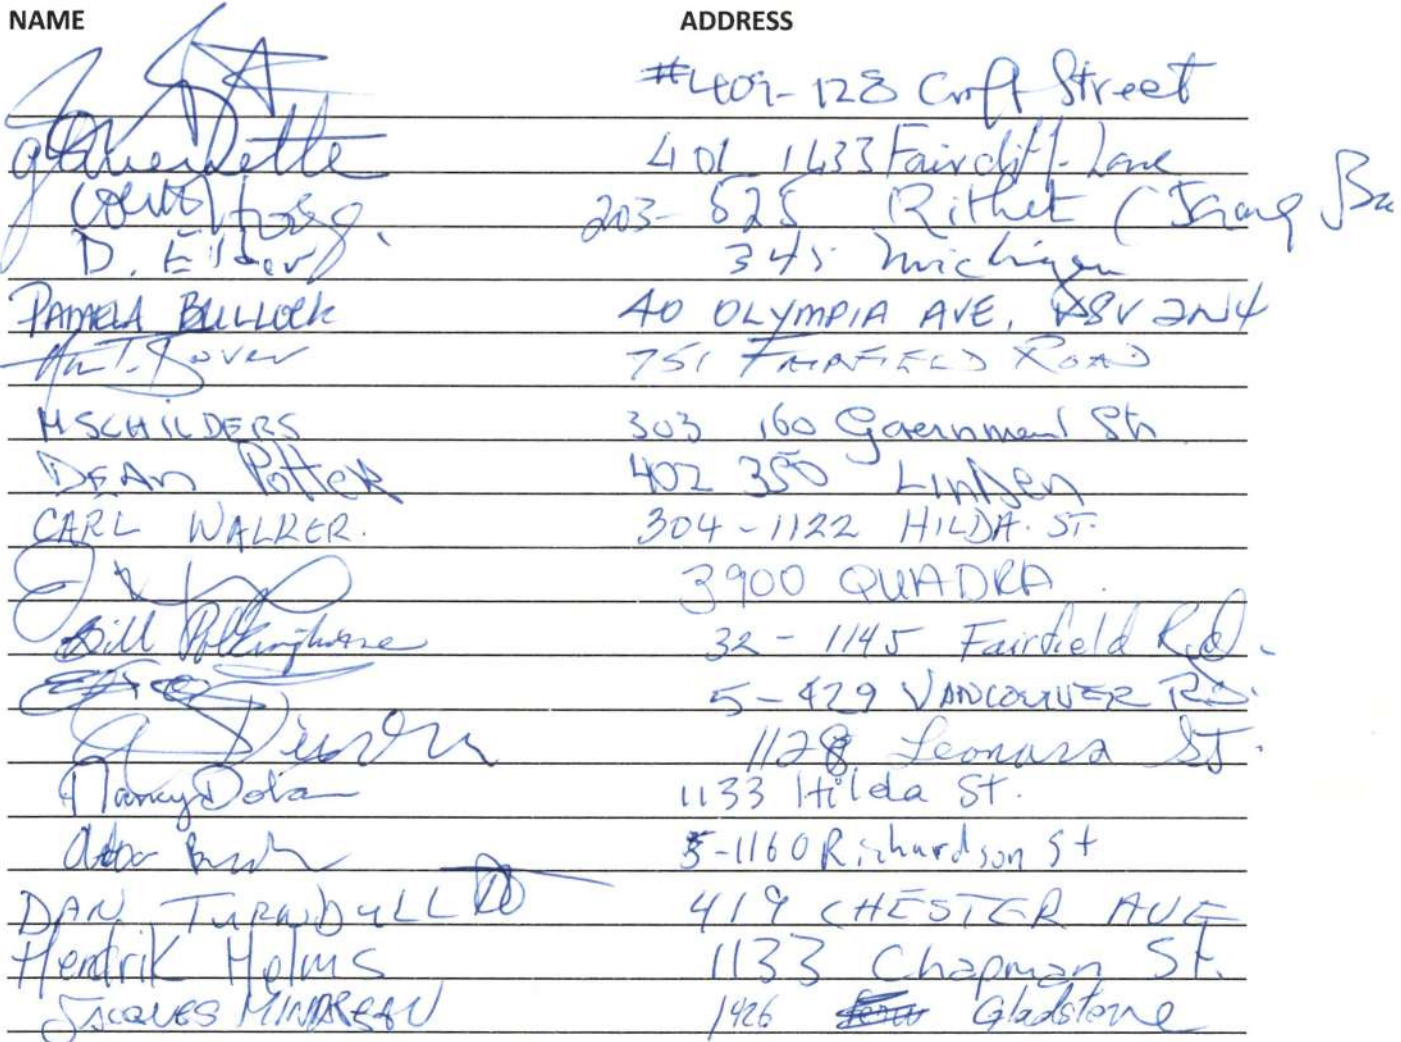 NAME ADDRESS
#409-128 Croft Street
401 1433 Faircliff Lane
203- 525 Rithet (
D. 345 Michigan
PAMELA BULLOCK 40 OLYMPIA AVE, V8V 2N4
751 FAIRFIELD ROAD
M SCHILDERS 303 160 Government St
DEAN Potter 402 350 Linden
CARL WALKER. 304-1122 HILDA. ST.
3900 QUADRA
Bill 32 - 1145 Fairfield Rd.
5-429 VANCOUVER RD.
1128 St.
Nancy 1133 Hilda St.
5-1160 Richardson St
DAN TURNBULL 419 CHESTER AVE
Hendrik Helms 1133 Chapman St.
JACQUES 1426 Gladstone